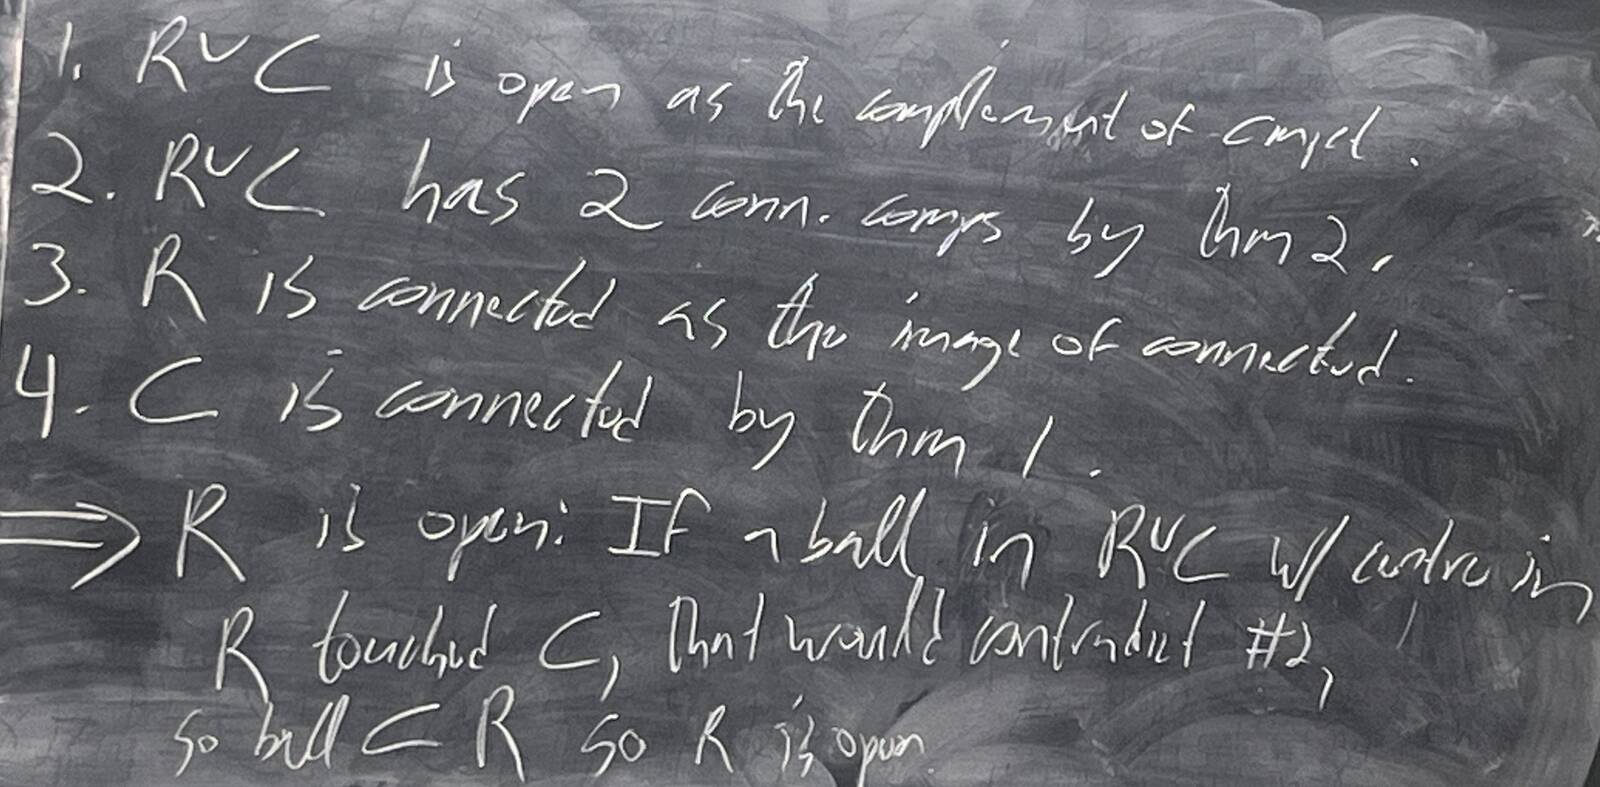 1. R∪C is open as the complement of cmpct.
2. R∪C has 2 conn. comps by thm 2.
3. R is connected as the image of connected.
4. C is connected by thm 1.
⇒ R is open: If a ball in R∪C w/ centre in
R touched C, that would contradict #2,
so ball ⊂ R so R is open.